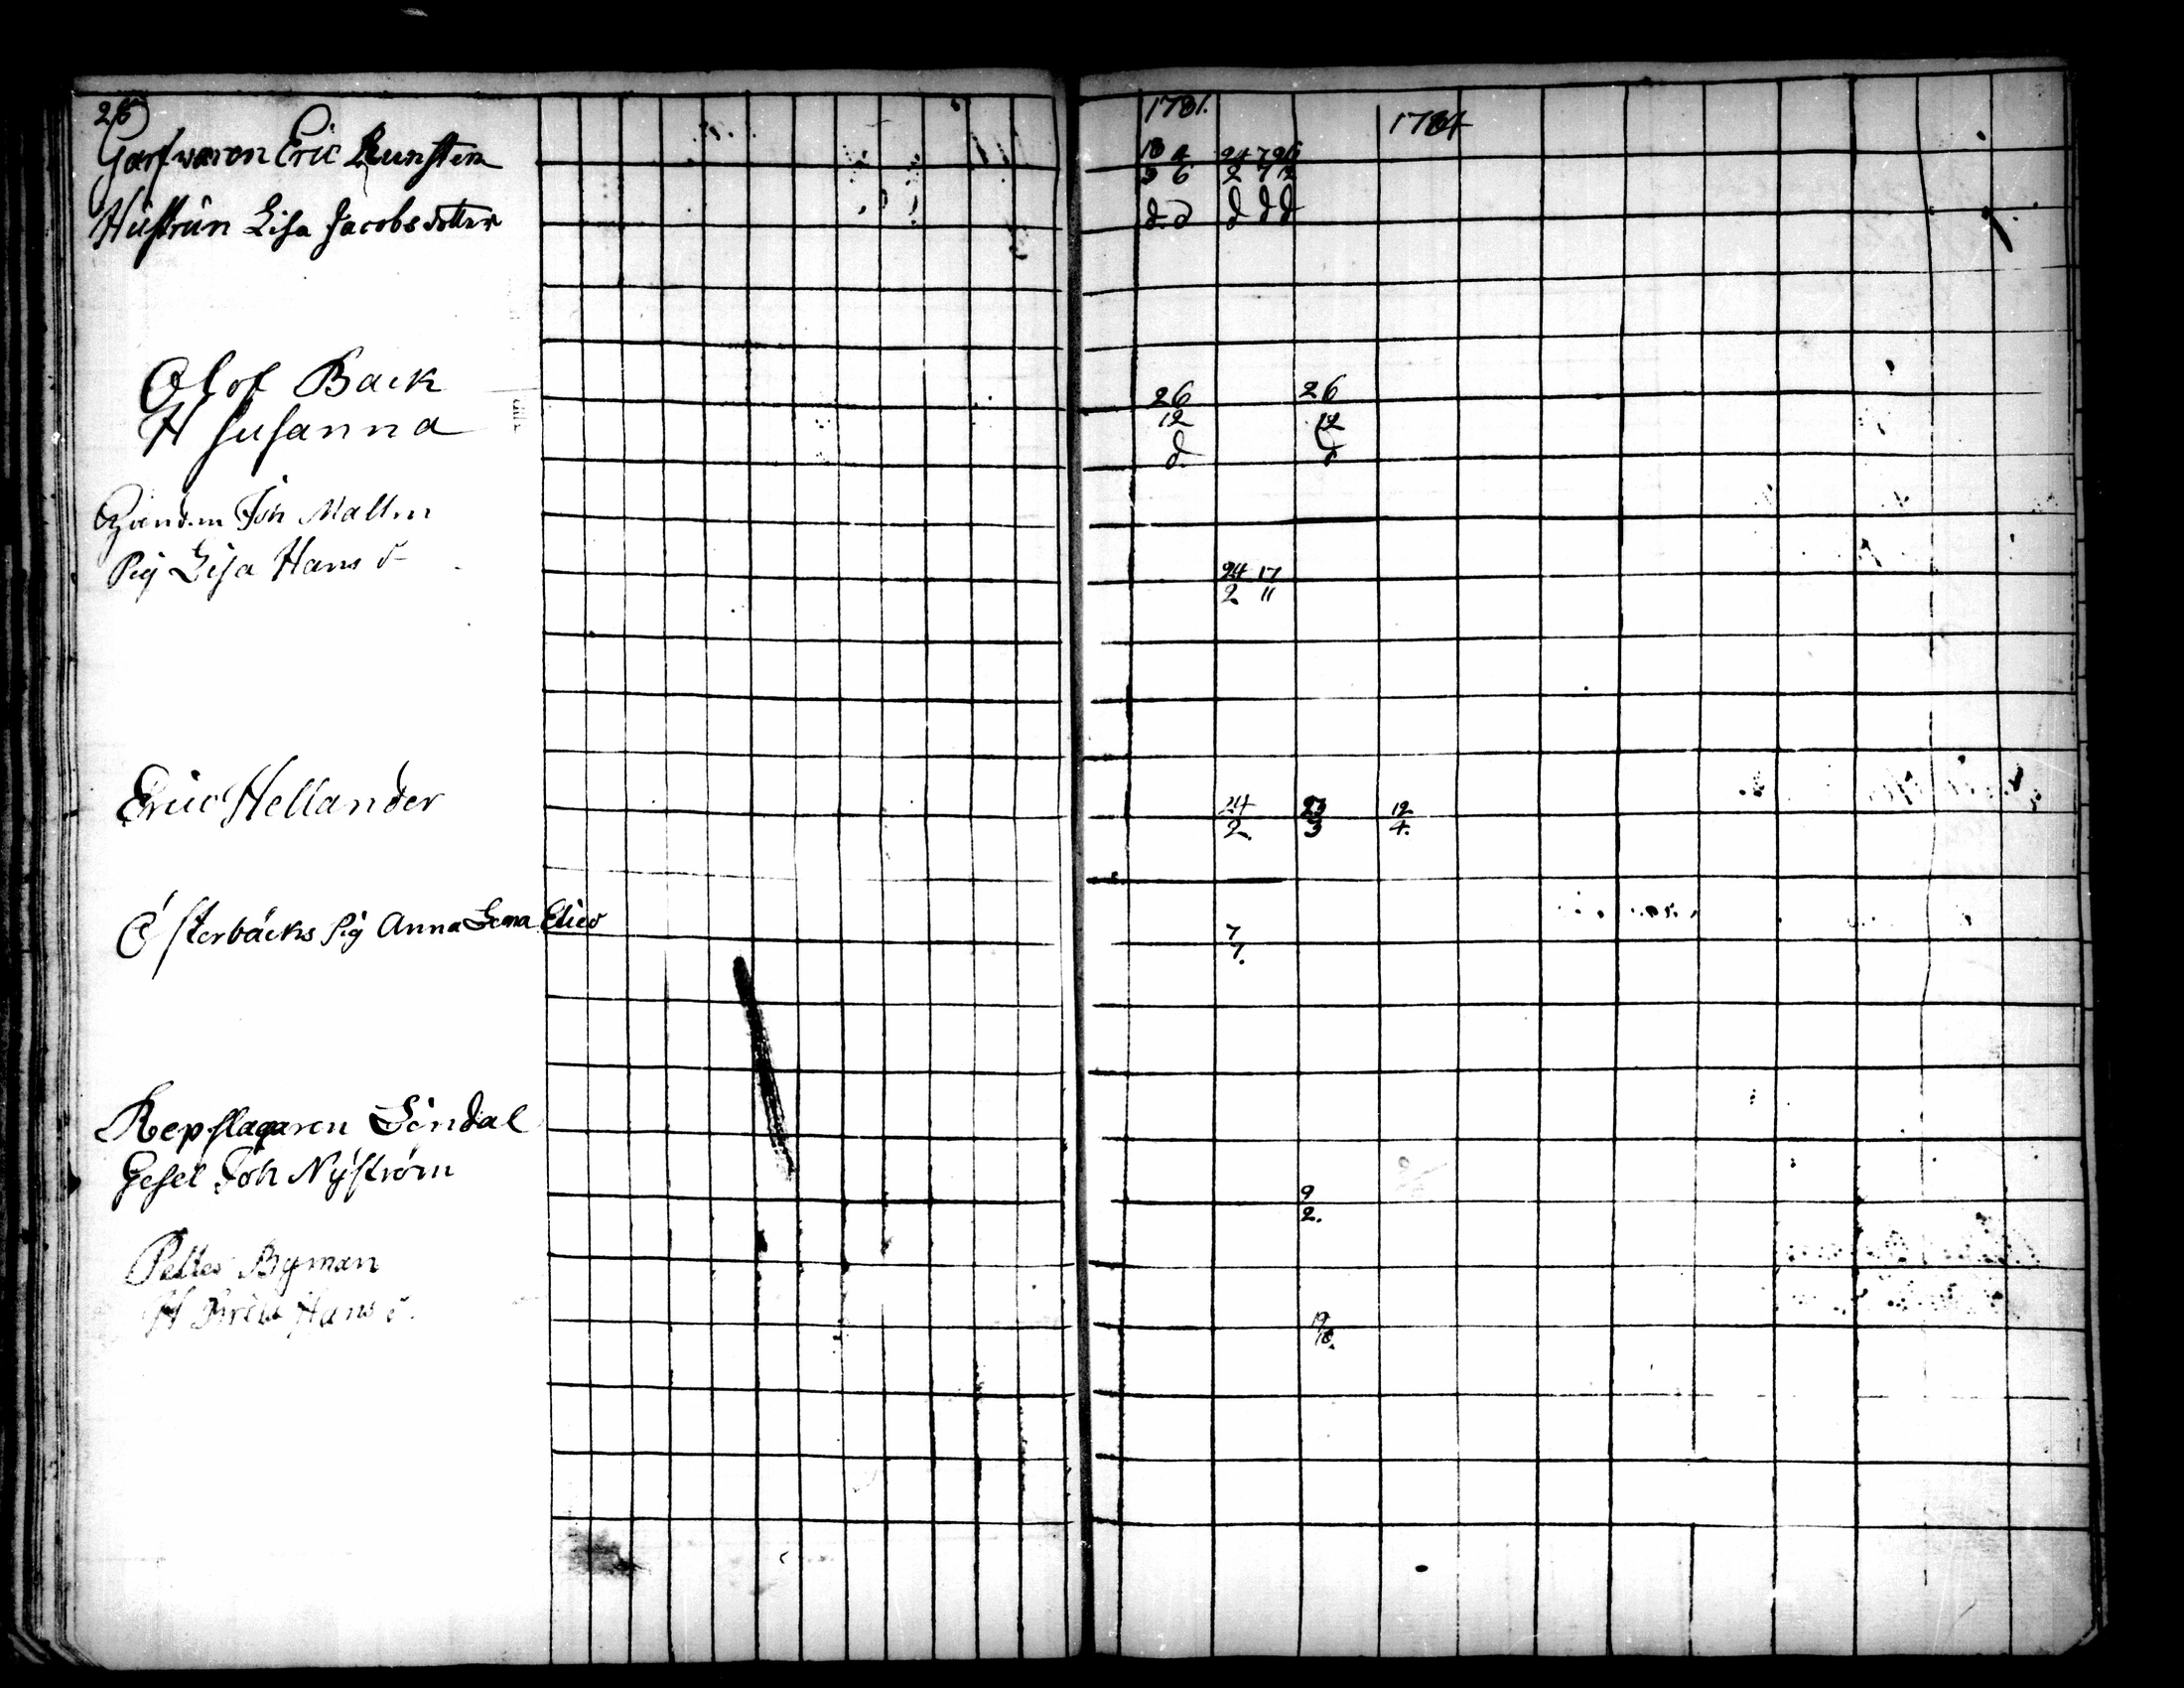 26
1781. 1784
Garfwaren Eric Runsten 18/3 4/6 24/2 7/7 26/12
Hustrun Lisa Jacobsdotter d d d d d
Olof Back 26/12 26/12
H Susanna d d
Joh Mallen
Pig Lisa Hans d 24/2 17/11
Eric Hellander 24/2 23/3 12/4.
Österbäcks Pig Anna Lena 7/7.
Repslagaren Lindal
Gesel Joh Nyström 9/2.
Petter Byman
H Hans d. 19/18.